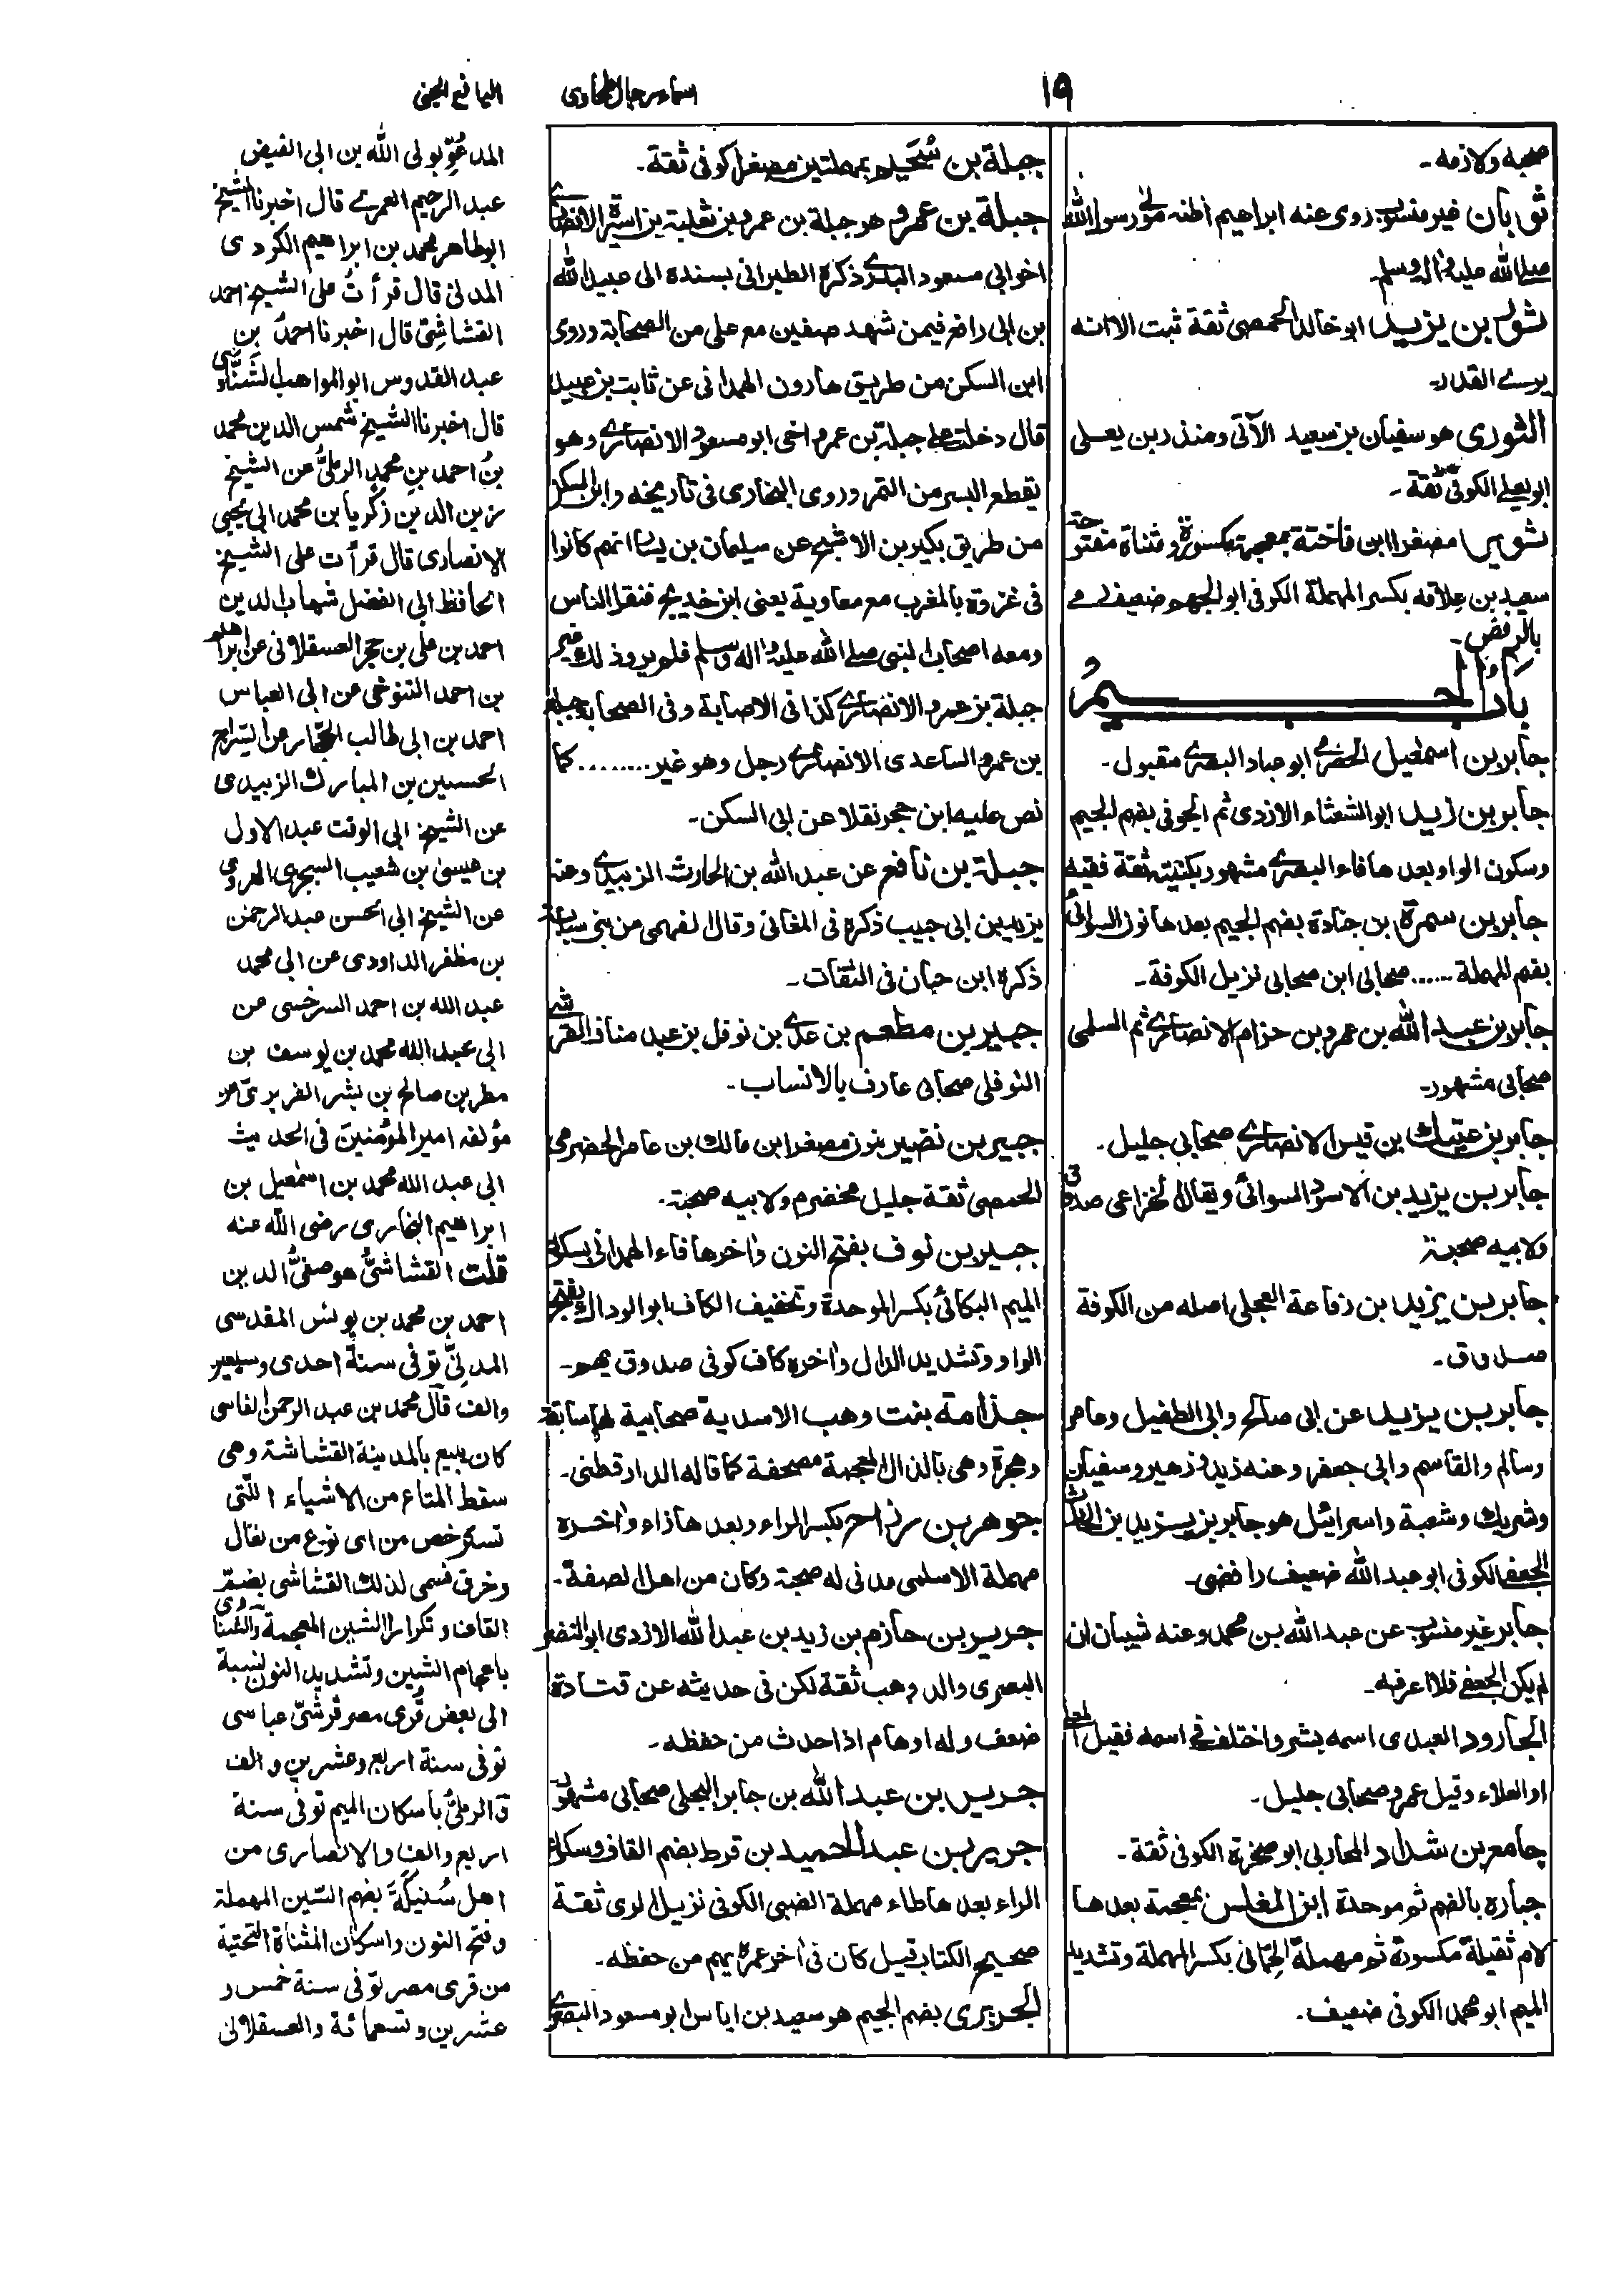 ١٩
اسماء رجال الطحاوى
اليانع الجنى
صحبه ولازمه۔
ثوبان غير منسوب روى عنه ابراهيم اظنه مولى رسول الله
صلے الله عليه واله وسلم۔
ثور بن يزيد ابو خالد الحمصى ثقة ثبت الا انه
يرے القدر۔
الثورى هو سفيان بن سعيد الآتى ومنذر بن يعلى
ابو يعلے الكوفى ثقة۔
ثوير مصغرا ابن فاختة بمعجمة مكسورة ومثناة مفتوحة
سعيد بن علاقه بكسر المهملة الكوفى ابو الجهم ضعيف رمے
بالرفض۔
باب الجيم
جابر بن اسمعيل الحضرمے ابو عباد البصرے مقبول۔
جابر بن زيد ابو الشعثاء الازدى ثم الجوفى بفتح الجيم
وسكون الواو بعدها فاء البصرے مشهور بكنيته ثقة فقيه
جابر بن سمرة بن جنادة بضم الجيم بعدها نون السوائى
بضم المهملة ...... صحابى ابن صحابى نزيل الكوفة۔
جابر بن عبد الله بن عمرو بن حزام الانصارے ثم السلمى
صحابى مشهور۔
جابر بن عتيك بن قيس الانصارے صحابى جليل۔
جابر بن يزيد بن الاسود السوائى ويقال الخزاعى صدوق
ولابيه صحبة
جابر بن يزيد بن رفاعة العجلى اصله من الكوفة
صدوق۔
جابر بن يزيد عن ابى صالح وابى الطفيل وعامر
وسالم والقاسم وابى جعفر وعنه زيد وزهير وسفيان
وشريك وشعبة واسرائيل هو جابر بن يزيد بن الحارث
الجعفے الكوفى ابو عبد الله ضعيف رافضى۔
جابر غير منسوب عن عبد الله بن محمد وعنه شيبان ان
لم يكن الجعفے فلا اعرفه۔
الجارود العبدى اسمه بشر واختلف فے اسمه فقيل المعلے
او العلاء وقيل عمرو صحابى جليل۔
جامع بن شداد المحاربى ابو صخرة الكوفى ثقة۔
جباره بالضم ثم موحدة ابن المغلس بمعجمة بعدها
لام ثقيلة مكسورة ثم مهملة الحِمّانى بكسر المهملة وتشديد
الميم ابو محمد الكوفى ضعيف۔
جبلة بن سُحَيم بمهملتين مصغرا كوفى ثقة۔
جبلة بن عمرو هو جبلة بن عمرو بن ثعلبة بن اسيرة الانصارے
اخو ابى مسعود البدرے ذكره الطبرانى بسنده الى عبيد الله
بن ابى رافع فيمن شهد صفين مع على من الصحابة وروى
ابن السكن من طريق هارون الهمدانى عن ثابت بن عبيد
قال دخلت علے جبلة بن عمرو اخى ابو مسعود الانصارے وهو
يقطع البسر من التمر وروى البخارى فى تاريخه وابن السكن
من طريق بكير بن الاشج عن سليمان بن يسار انهم كانوا
فى غزوة بالمغرب مع معاوية يعنى ابن خديج فنفرا الناس
ومعه اصحاب النبى صلے الله عليه واله وسلم فلم يرو ذلك غير
جبلة بن عمرو الانصارے كذا فى الاصابة وفى الصحابة جبلة
بن عمرو الساعدى الانصارے رجل وهو غير ........ كما
نص عليه ابن حجر نقلا عن ابى السكن۔
جبلة بن نافع عن عبد الله بن الحارث الزبيدے وعنه
يزيد بن ابى حبيب ذكره فى المغانى وقال الفهمى من بنى سباعة
ذكره ابن حبان فى الثقات۔
جبير بن مطعم بن عدے بن نوفل بن عبد مناف القرشى
النوفلى صحابى عارف بالانساب۔
جبير بن نضير بنون مصغرا ابن مالك بن عامر الحضرمى
الحمصى ثقة جليل مخضرم ولابيه صحبة۔
جبير بن نوف بفتح النون واخرها فاء الهمدانى بسكون
الميم البكائى بكسر الموحدة وتخفيف الكاف ابو الوداك بفتح
الواو وتشديد الدال واخره كاف كوفى صدوق يهم۔
جذامة بنت وهب الاسدية صحابية لها سابقة
وهجرة وهى بالذال المعجمة مصحفة كما قاله الدارقطنى۔
جوهر بن رزاح بكسر الراء وبعدها زاء واخره
مهملة الاسلمى مدنى له صحبة وكان من اهل الصفة۔
جرير بن حازم بن زيد بن عبد الله الازدى ابو النضر
البصرى والد وهب ثقة لكن فى حديثه عن قتادة
ضعف وله اوهام اذا حدث من حفظه۔
جرير بن عبد الله بن جابر البجلى صحابى مشهور
جرير بن عبد الحميد بن قرط بضم القاف وسكون
الراء بعدها طاء مهملة الضبى الكوفى نزيل الرى ثقة
صحيح الكتاب قيل كان فى اخر عمره يهم من حفظه۔
الجريرى بضم الجيم هو سعيد بن اياس ابو مسعود البصرے
المدعُوّ بولى الله بن ابى الفيض
عبد الرحيم العمرے قال اخبرنا الشيخ
ابو طاهر محمد بن ابراهيم الكردى
المدنى قال قرأتُ على الشيخ احمد
القشاشِىّ قال اخبرنا احمدُ بن
عبد القدوس ابو المواهب الشنَّاوى
قال اخبرنا الشيخ شمس الدين محمد
بنُ احمد بنِ محمدٍ الرملىُّ عن الشيخ
زين الدين زكريا بن محمد ابى يحيى
الانصارى قال قرأت على الشيخ
الحافظ ابى الفضل شهاب الدين
احمد بن على بن حجر العسقلانى عن ابراهيم
بن احمد التنوخى عن ابى العباس
احمد بن ابى طالب الحجّار عن السّراج
الحسين بن المبارك الزبيدى
عن الشيخ ابى الوقت عبد الاول
بن عيسى بن شعيب السجزى الهروى
عن الشيخ ابى الحسن عبد الرحمن
بن مظفر الداودى عن ابى محمد
عبد الله بن احمد السرخسى عن
ابى عبد الله محمد بن يوسف بن
مطر بن صالح بن بشر الفربرىّ عن
مؤلفه امير المؤمنين فى الحديث
ابى عبد الله محمد بن اسمعيل بن
ابراهيم البخارى رضى الله عنه
قلت القشاشىُّ هو صفىُّ الدين
احمد بن محمد بن يونس المقدسى
المدنِىّ توفى سنة احدى وسبعين
والف قال محمد بن عبد الرحمن الفاسى
كان يبيع بالمدينة القشاشة وهى
سقط المتاع من الاشياء الّتى
تسترخص من اى نوع من نعال
وخرق فسمى لذلك القشاشى بضم
القاف وتكرار الشين المعجمة والشناوى
باعجام الشين وتشديد النون لنسبة
الى بعض قُرى مصر قرشىّ عباسى
توفى سنة اربع وعشرين والف
والرملىُّ باسكان الميم توفى سنة
اربع والف والانصارى من
اهل سُنيكَةَ بضم السّين المهملة
وفتح النون واسكان المثناة التحتية
من قرى مصر توفى سنة خمس و
عشرين وتسعمائة والعسقلانى